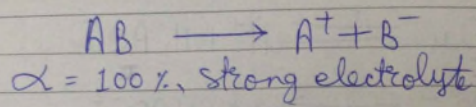 AB ⟶ A⁺ + B⁻
α = 100 %, strong electrolyte